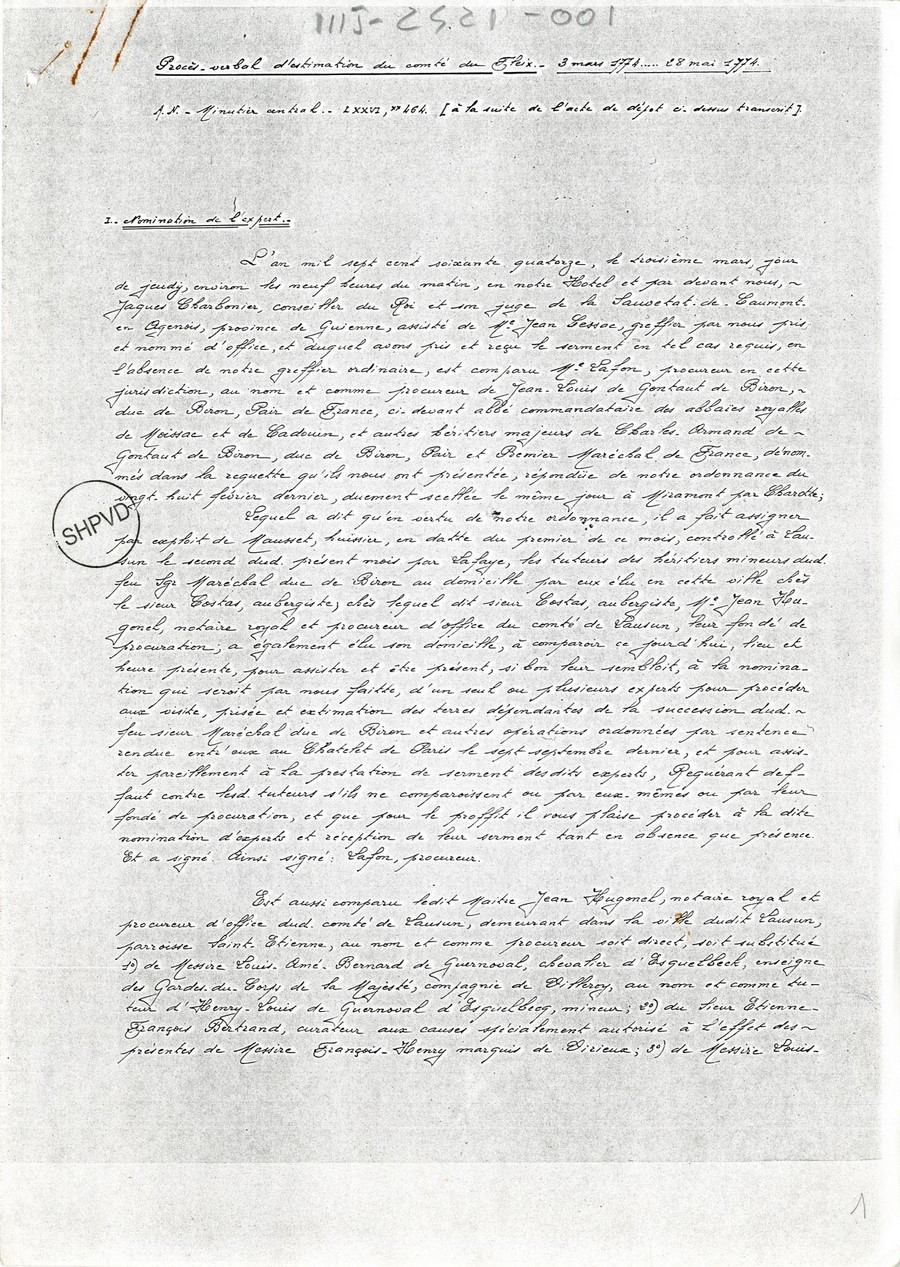 IIIJ-2S.21 -001
Procès-verbal d'estimation du comté du Fleix.- 3 mars 1774..... 28 mai 1774.
A.N. - Minutier central.- LXXVI, n° 464. [à la suite de l'acte de dépôt ci-dessus transcrit].
I.- Nomination de l'expert.-
L'an mil sept cent soixante quatorze, le troisième mars, jour
de jeudy, environ les neuf heures du matin, en notre Hotel et par devant nous, ~
Jaques Charbonier, conseiller du Roi et son juge de la Sauvetat-de-Caumont
en Agenois, province de Guienne, assisté de Me Jean Lessac, greffier par nous pris
et nommé d'office, et duquel avons pris et reçu le serment en tel cas requis, en
l'absence de notre greffier ordinaire, est comparu Me Lafon, procureur en cette
jurisdiction, au nom et comme procureur de Jean-Louis de Gontaut de Biron, ~
duc de Biron, Pair de France, ci-devant abbé commandataire des abbaïes royalles
de Moissac et de Cadouin, et autres héritiers majeurs de Charles-Armand de ~
Gontaut de Biron, duc de Biron, Pair et Premier Maréchal de France, dénom-
més dans la requette qu'ils nous ont présentée, répondüe de notre ordonnance du
vingt huit février dernier, duement scellée le même jour à Miramont par Charotte;
Lequel a dit qu'en vertu de notre ordonnance, il a fait assigner
par exploit de Mausset, huissier, en datte du premier de ce mois, controllé à Lau-
sun le second dud. présent mois par Lafaye, les tuteurs des héritiers mineurs dud.
feu Sgr Maréchal duc de Biron au domicille par eux élu en cette ville chès
le sieur Costas, aubergiste; chès lequel dit sieur Costas, aubergiste, Me Jean Hu-
gonel, notaire royal et procureur d'office du comté de Lausun, leur fondé de
procuration, a également élu son domicille, à comparoir ce jourd'hui, lieu et
heure présente, pour assister et être présent, si bon leur sembloit, à la nomina-
tion qui seroit par nous faitte, d'un seul ou plusieurs experts pour procéder
aux visite, prisée et extimation des terres dépendantes de la succession dud. ~
feu sieur Maréchal duc de Biron et autres opérations ordonnées par sentence
rendue entr'eux au Chatelet de Paris le sept septembre dernier, et pour assis-
ter pareillement à la prestation de serment desdits experts, Requérant def-
faut contre lesd. tuteurs s'ils ne comparoissent ou par eux-mêmes ou par leur
fondé de procuration, et que pour le proffit il vous plaise procéder à la dite
nomination d'experts et réception de leur serment tant en absence que présence
Et a signé. Ainsi signé: Lafon, procureur.
Est aussi comparu ledit Maitre Jean Hugonel, notaire royal et
procureur d'office dud. comté de Lausun, demeurant dans la ville dudit Lausun,
parroisse Saint-Etienne, au nom et comme procureur soit direct, soit substitué
1°) de Messire Louis-Amé-Bernard de Guernoval, chevalier d'Esquelbeck, enseigne
des Gardes-du-Corps de la Majesté, compagnie de Villeroy, au nom et comme tu-
teur d'Henry-Louis de Guernoval d'Esquelbecq, mineur; 2°) du Sieur Etienne-
François Bertrand, curateur aux causes spécialement autorisé à l'effet des ~
présentes de Messire François-Henry marquis de Virieux; 3°) de Messire Louis-
SHPVD
1